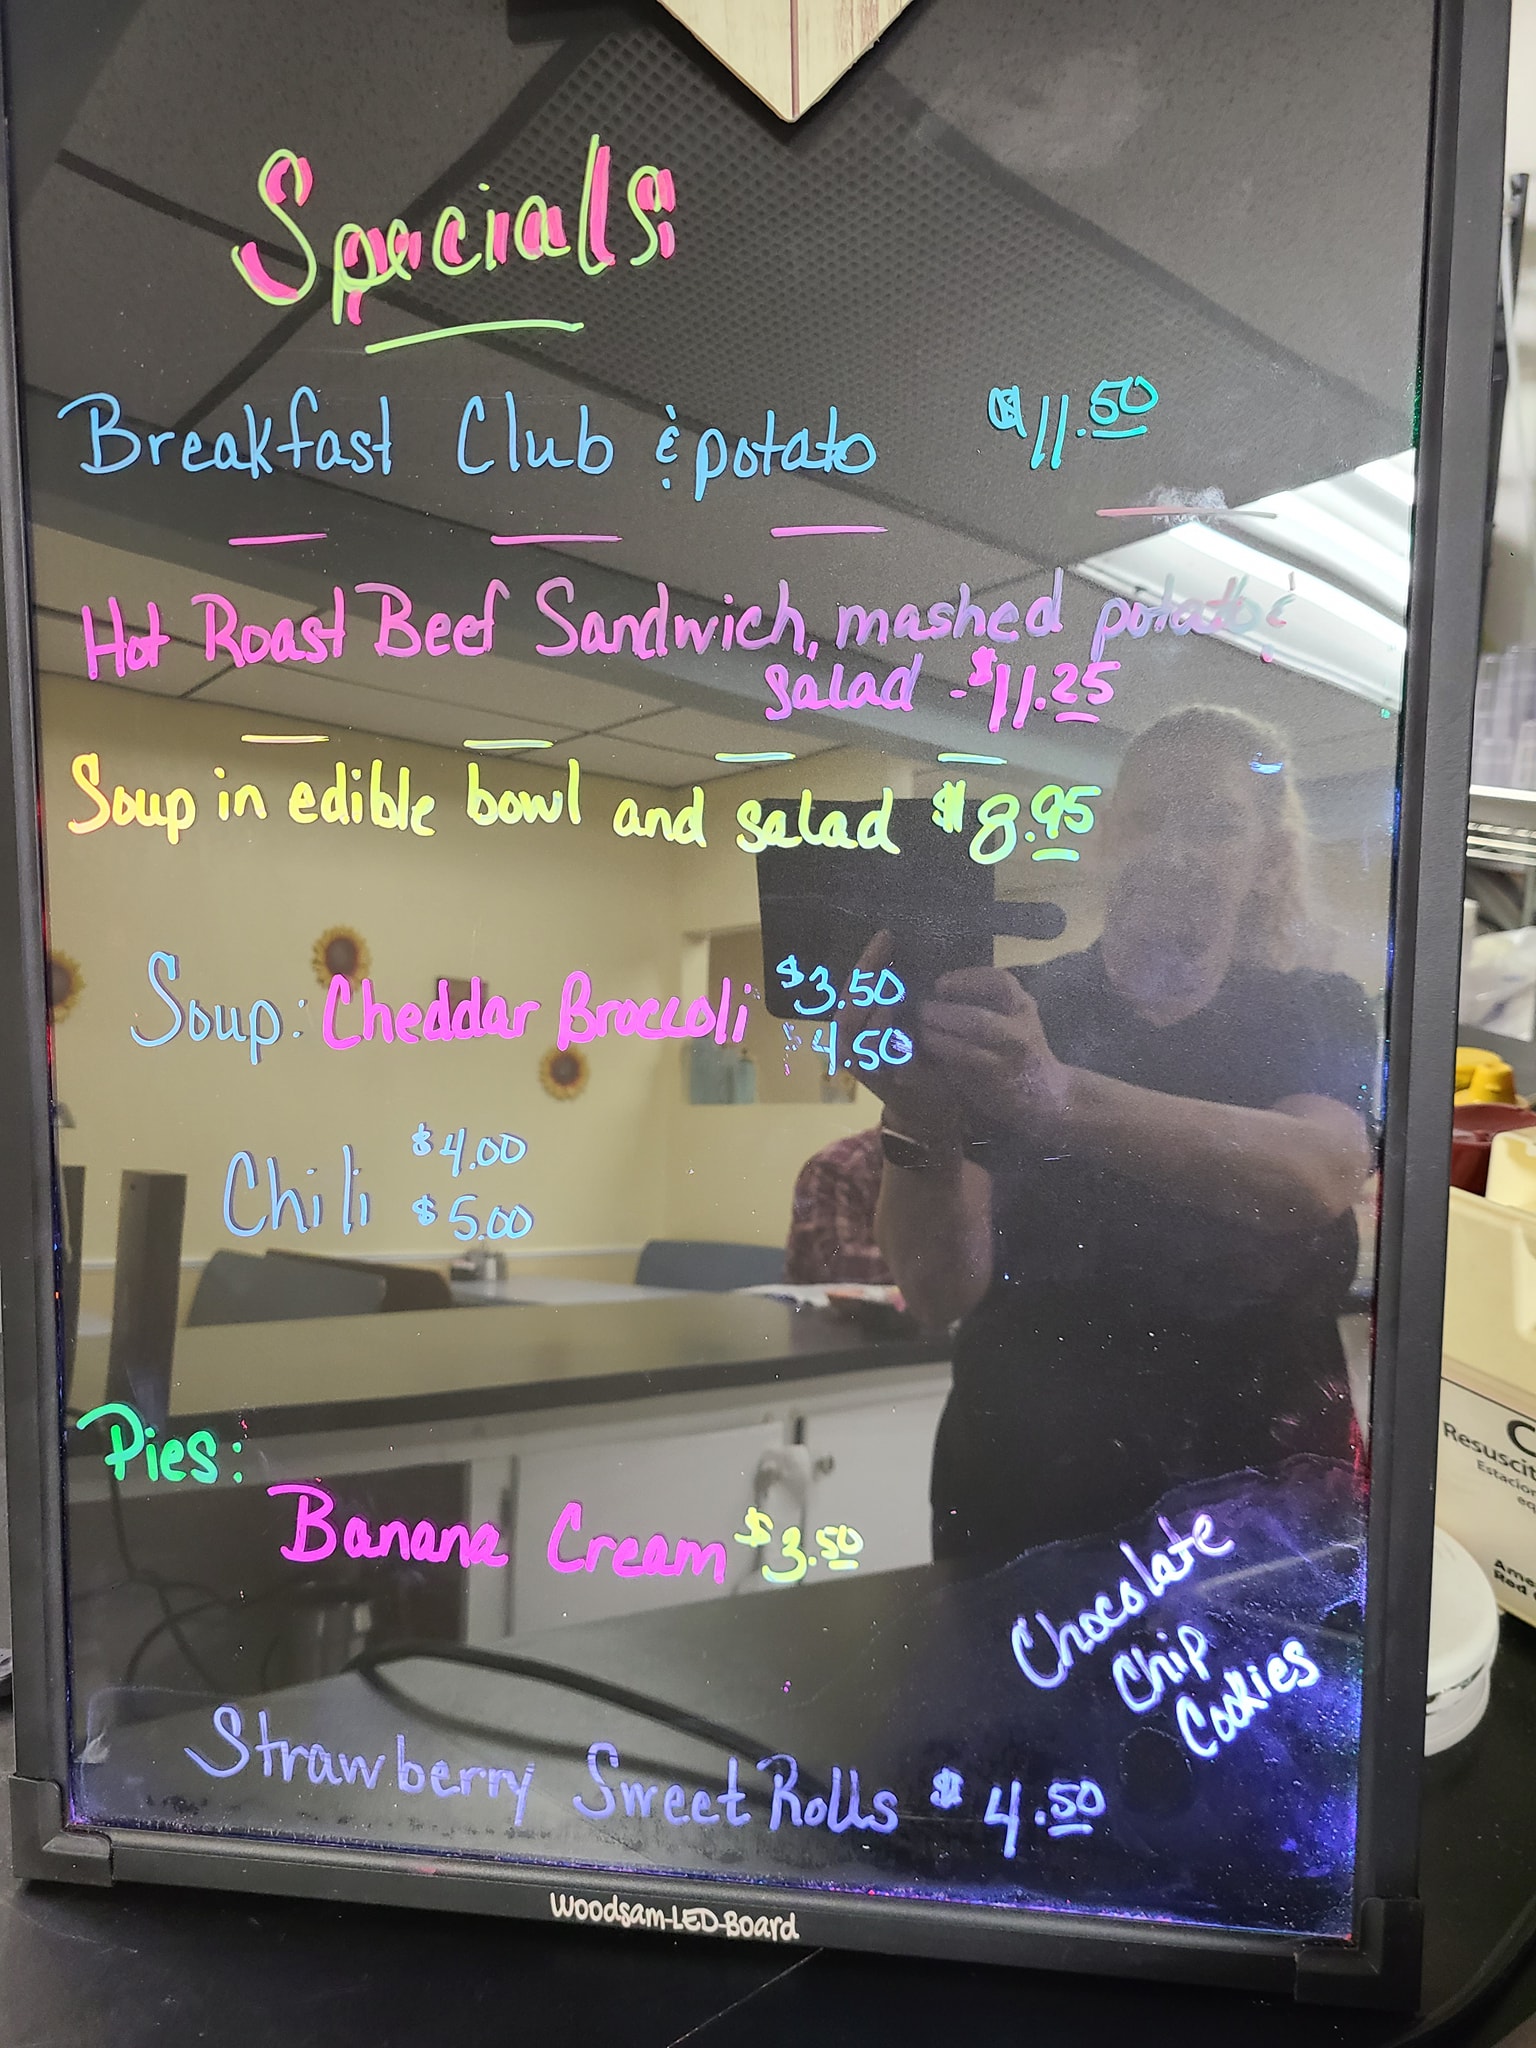 Specials:
Breakfast Club & potato $11.50
Hot Roast Beef Sandwich, mashed potato &
salad - $11.25
Soup in edible bowl and salad $8.95
Soup: Cheddar Broccoli $3.50
$4.50
Chili $4.00
$5.00
Pies:
Banana Cream $3.50
Chocolate
Chip
Cookies
Strawberry Sweet Rolls $4.50
Woodsam-LED-Board
Resuscit
Estacion
Ame
Red